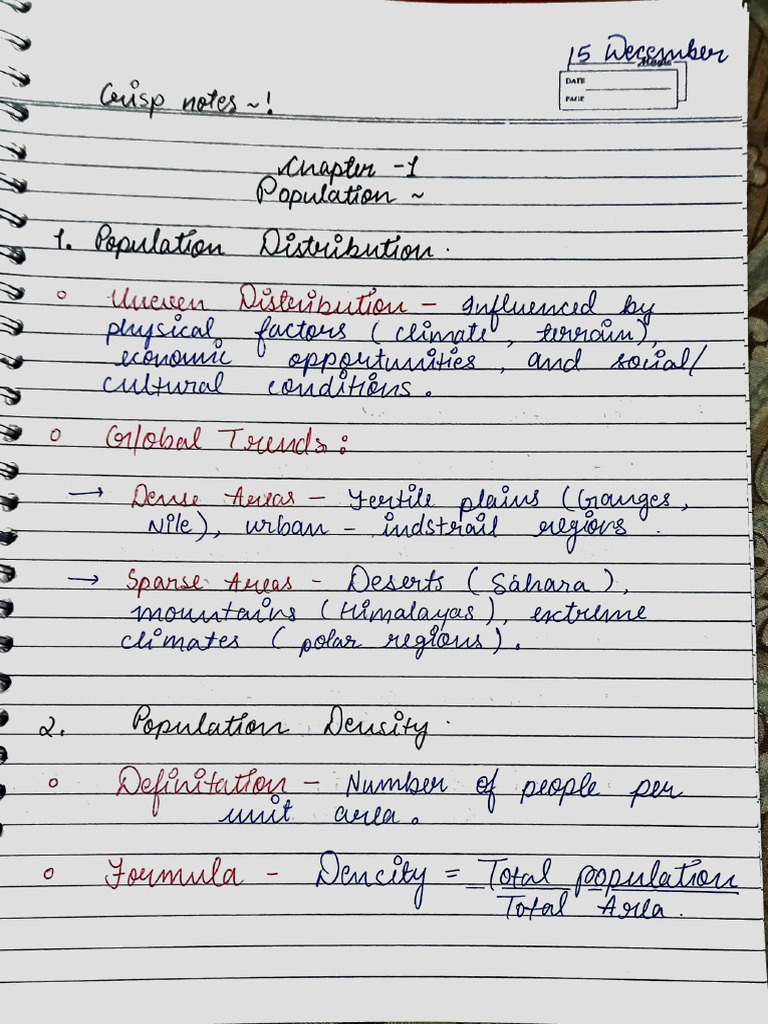 15 December
DATE
PAGE
Crisp notes ~!
Chapter -1
Population ~
1. Population Distribution.
Uneven Distribution - Influenced by
physical factors (climate, terrain),
economic opportunities, and social/
cultural conditions.
Global Trends:
→ Dense Areas - Fertile plains (Ganges,
Nile), urban - indstrail regions.
→ Sparse Areas - Deserts (Sahara),
mountains (Himalayas), extreme
climates (polar regions).
2. Population Density.
Definitation - Number of people per
unit area.
Formula - Dencity = Total population
Total Area.